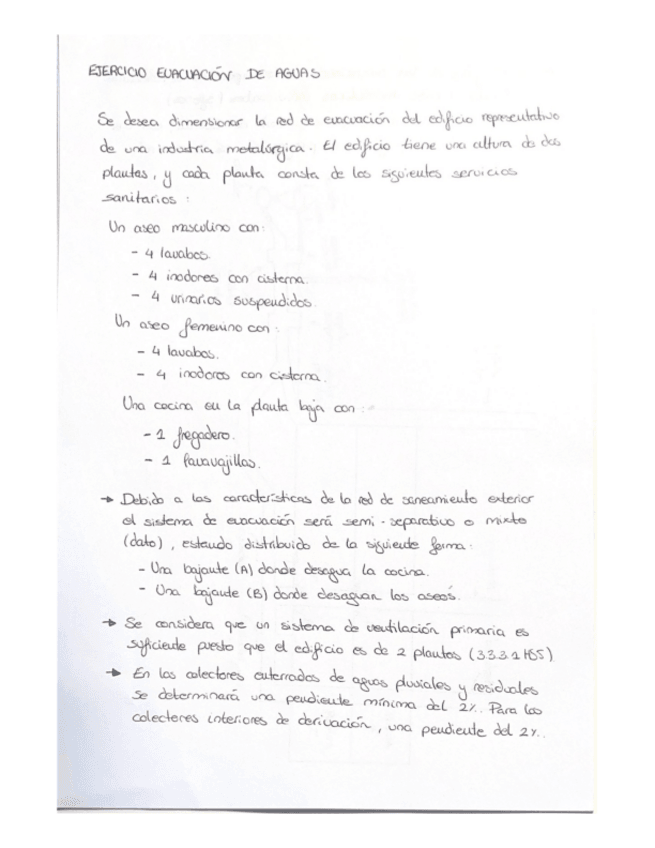 EJERCICIO EVACUACIÓN DE AGUAS
Se desea dimensionar la red de evacuación del edificio representativo
de una industria metalúrgica. El edificio tiene una altura de dos
plantas, y cada planta consta de los siguientes servicios
sanitarios :
Un aseo masculino con:
- 4 lavabos.
- 4 inodoros con cisterna.
- 4 urinarios suspendidos.
Un aseo femenino con :
- 4 lavabos.
- 4 inodoros con cisterna.
Una cocina en la planta baja con :
- 1 fregadero.
- 1 lavavajillas.
→ Debido a las características de la red de saneamiento exterior
el sistema de evacuación será semi-separativo o mixto
(dato), estando distribuido de la siguiente forma:
- Una bajante (A) donde desagua la cocina.
- Una bajante (B) donde desaguan los aseos.
→ Se considera que un sistema de ventilación primaria es
suficiente puesto que el edificio es de 2 plantas (3.3.3.1 HS5)
→ En los colectores enterrados de aguas pluviales y residuales
se determinará una pendiente mínima del 2%. Para los
colectores interiores de derivación, una pendiente del 2%.